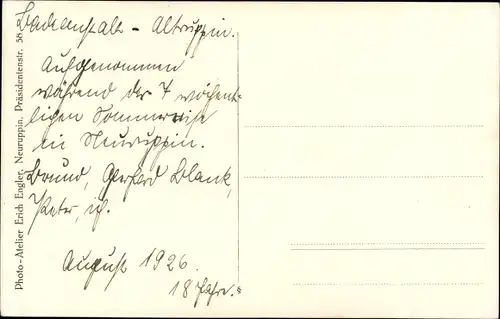 Badeanstalt - Altruppin.
Aufgenommen
während der 7 wöchent-
lichen Sommerreise
in Neuruppin.
Gerhard Blank,
Peter, ich.
August 1926.
18 Jahre.
Photo-Atelier Erich Engler, Neuruppin, Präsidentenstr. 58